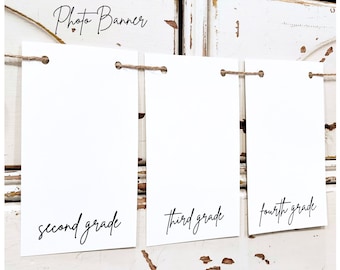 Photo Banner
second grade
third grade
fourth grade